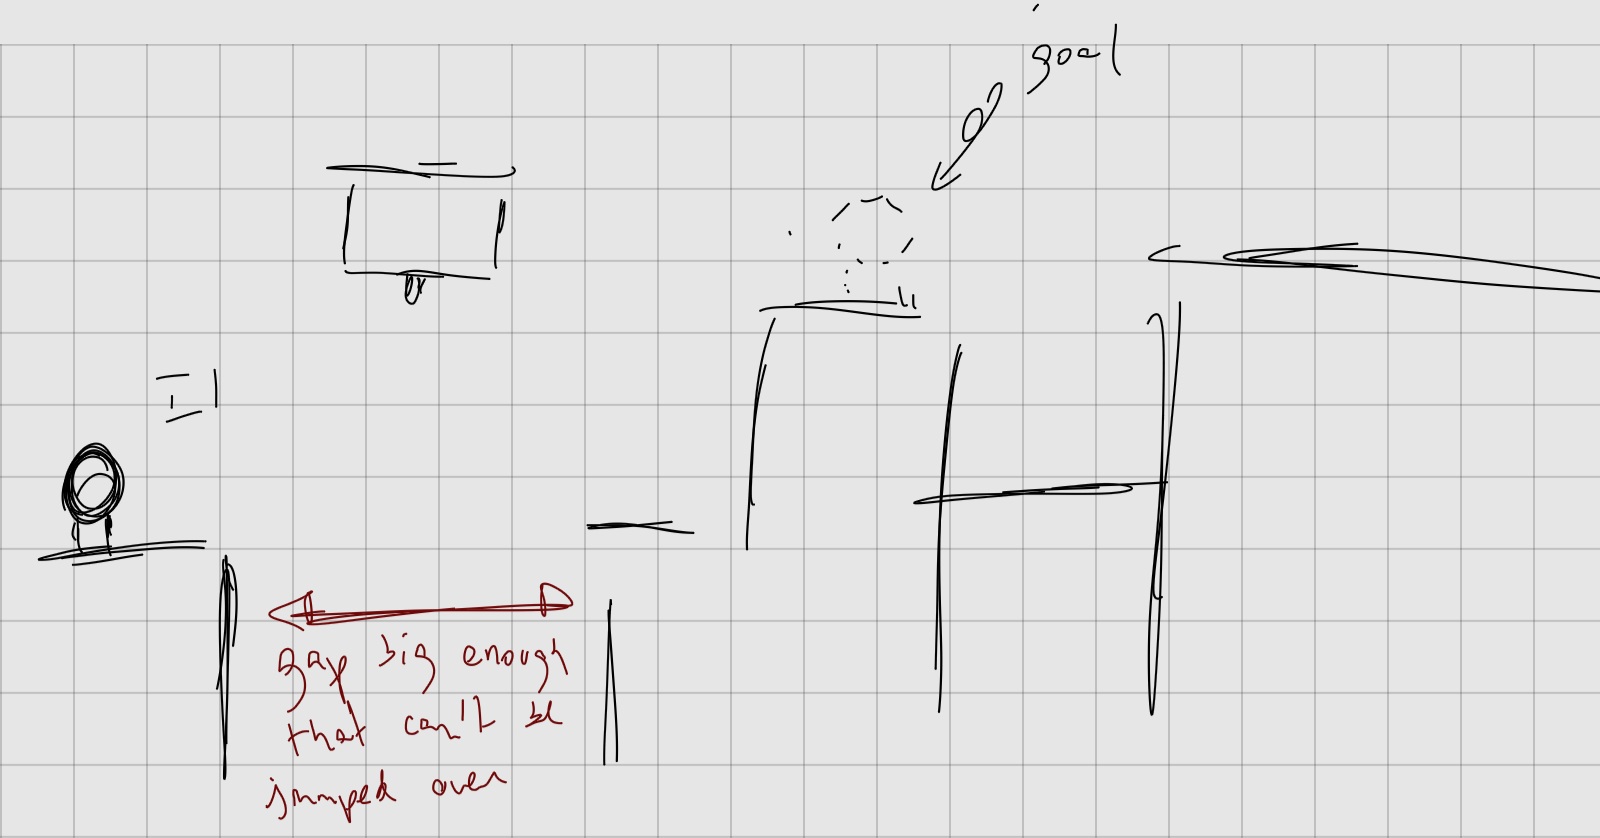 goal
gap big enough
that can't be
jumped over